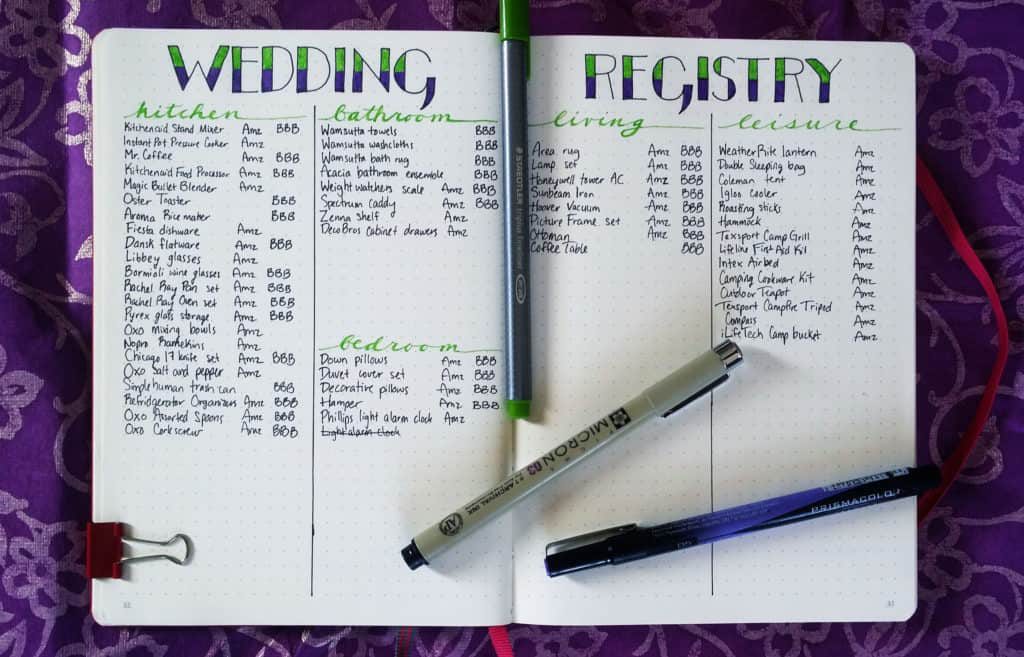 WEDDING REGISTRY
kitchen
Kitchenaid Stand Mixer Amz BBB
Instant Pot Pressure Cooker Amz
Mr. Coffee Amz BBB
Kitchenaid Food Processor Amz BBB
Magic Bullet Blender Amz
Oster Toaster BBB
Aroma Rice maker BBB
Fiesta dishware Amz
Dansk flatware Amz BBB
Libbey glasses Amz
Bormioli wine glasses Amz BBB
Rachel Ray Pan set Amz BBB
Rachel Ray Oven set Amz BBB
Pyrex glass storage Amz BBB
Oxo mixing bowls Amz
Nopro Ramekins Amz
Chicago 17 knife set Amz BBB
Oxo Salt and pepper Amz
Simplehuman trash can BBB
Refridgerator Organizers Amz BBB
Oxo Assorted Spoons Amz BBB
Oxo Corkscrew Amz BBB
bathroom
Wamsutta towels BBB
Wamsutta washcloths BBB
Wamsutta bath rug BBB
Acacia bathroom ensemble BBB
Weight watchers scale Amz BBB
Spectrum Caddy Amz BBB
Zenna shelf Amz
DecoBros cabinet drawers Amz
bedroom
Down pillows Amz BBB
Duvet cover set Amz BBB
Decorative pillows Amz BBB
Hamper Amz BBB
Phillips light alarm clock Amz
Light alarm clock
living
Area rug Amz BBB
Lamp set Amz BBB
Honeywell tower AC Amz BBB
Sunbeam Iron Amz BBB
Hoover Vacuum Amz BBB
Picture Frame set Amz BBB
Ottoman Amz BBB
Coffee Table BBB
leisure
WeatherRite lantern Amz
Double Sleeping bag Amz
Coleman tent Amz
Igloo cooler Amz
Roasting sticks Amz
Hammock Amz
Texsport Camp Grill Amz
Lifeline First Aid Kit Amz
Intex Airbed Amz
Camping Cookware Kit Amz
Outdoor Teapot Amz
Texsport Campfire Tripod Amz
Compass Amz
iLifeTech Camp bucket Amz
STAEDTLER triplus fineliner
MICRON 03
ARCHIVAL INK
AP
PRISMACOLOR